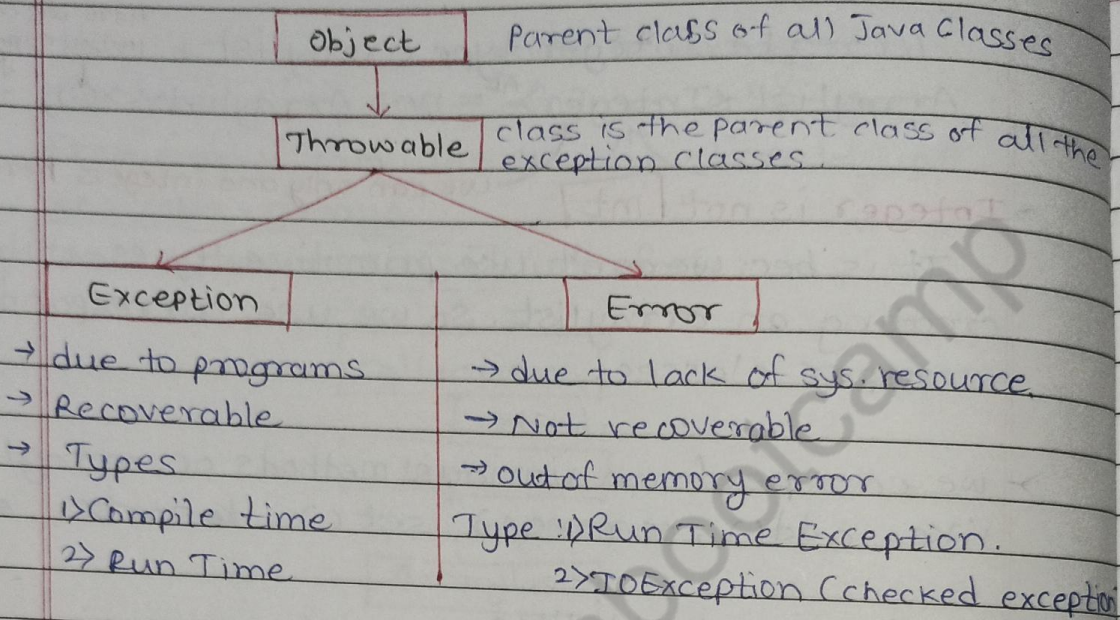 Object
Parent class of all Java Classes
Throwable
class is the parent class of all the
exception classes.
Exception
→ due to programs
→ Recoverable
→ Types
1> Compile time
2> Run Time
Error
→ due to lack of sys. resource.
→ Not recoverable
→ out of memory error
Type :1> Run Time Exception.
2> IOException (checked exception